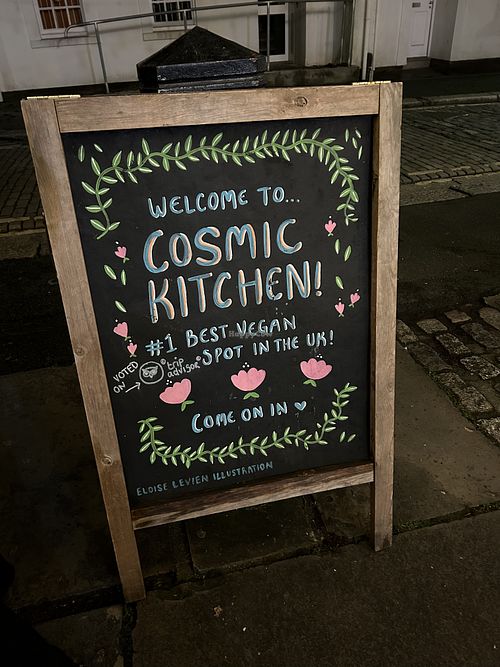 WELCOME TO...
COSMIC
KITCHEN!
#1 BEST VEGAN
SPOT IN THE UK!
VOTED
ON
trip
advisor
COME ON IN
ELOISE LEVIEN ILLUSTRATION
HappyCow